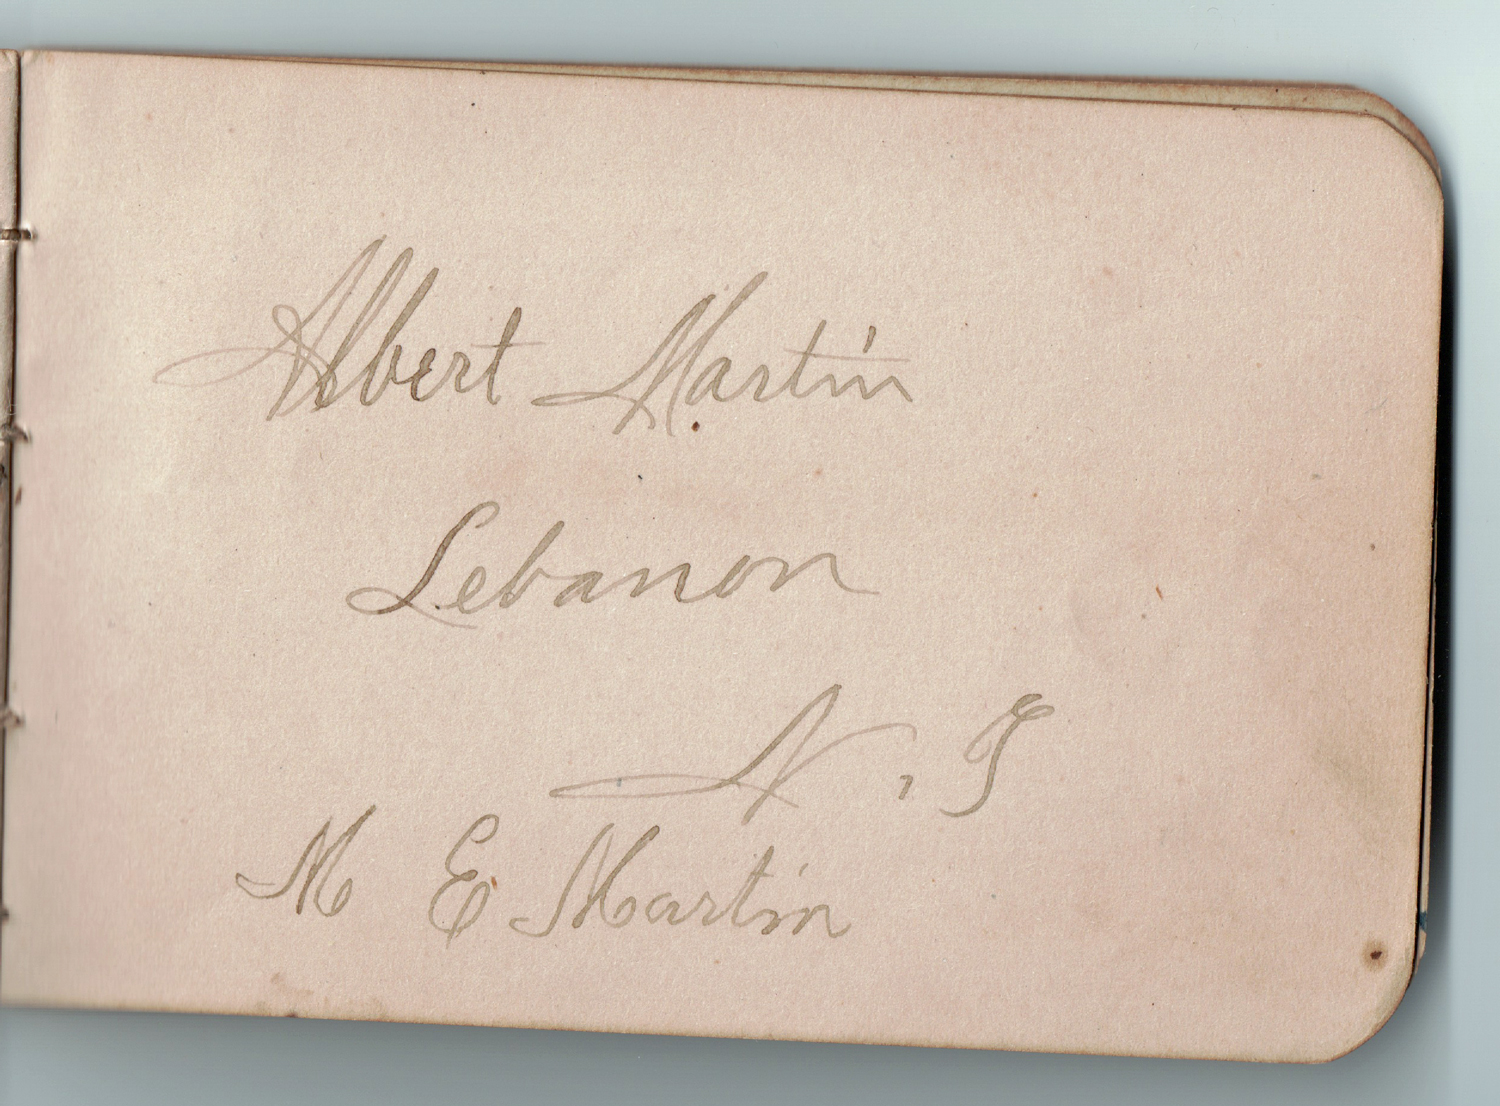 Albert Martin
Lebanon
N. J
M E Martin